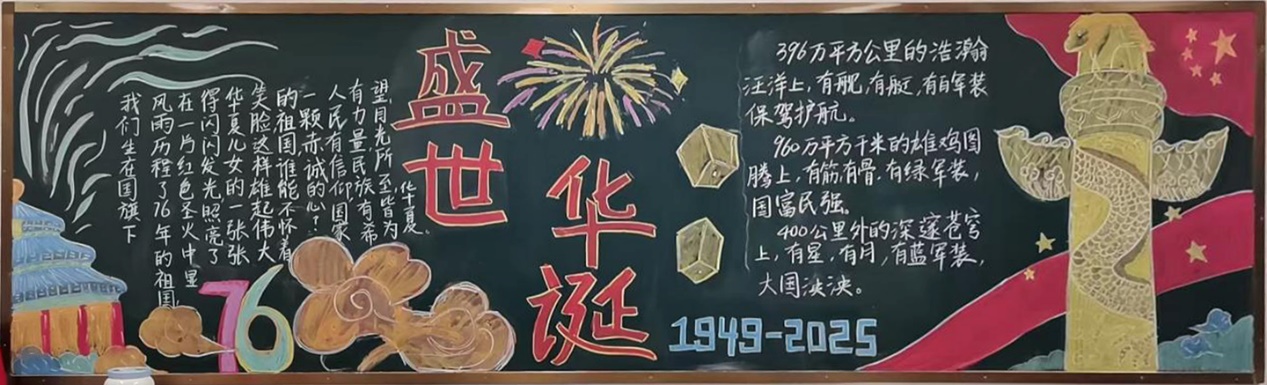 我们生在国旗下
风雨历程了76年的祖国,
在一片红色圣火中显
得闪闪发光照亮了
华夏儿女的一张张
笑脸这样雄起伟大
的祖国谁能不怀着
一颗赤诚的心?
人民有信仰,国家
有力量民族有希
望目光所至皆为
华夏。
76
盛世
华诞
1949-2025
396万平方公里的浩瀚
汪洋上,有舰,有艇,有白军装
保驾护航。
960万平方千米的雄鸡图
腾上,有筋,有骨,有绿军装,
国富民强。
400公里外的深邃苍穹
上,有星,有月,有蓝军装,
大国泱泱。